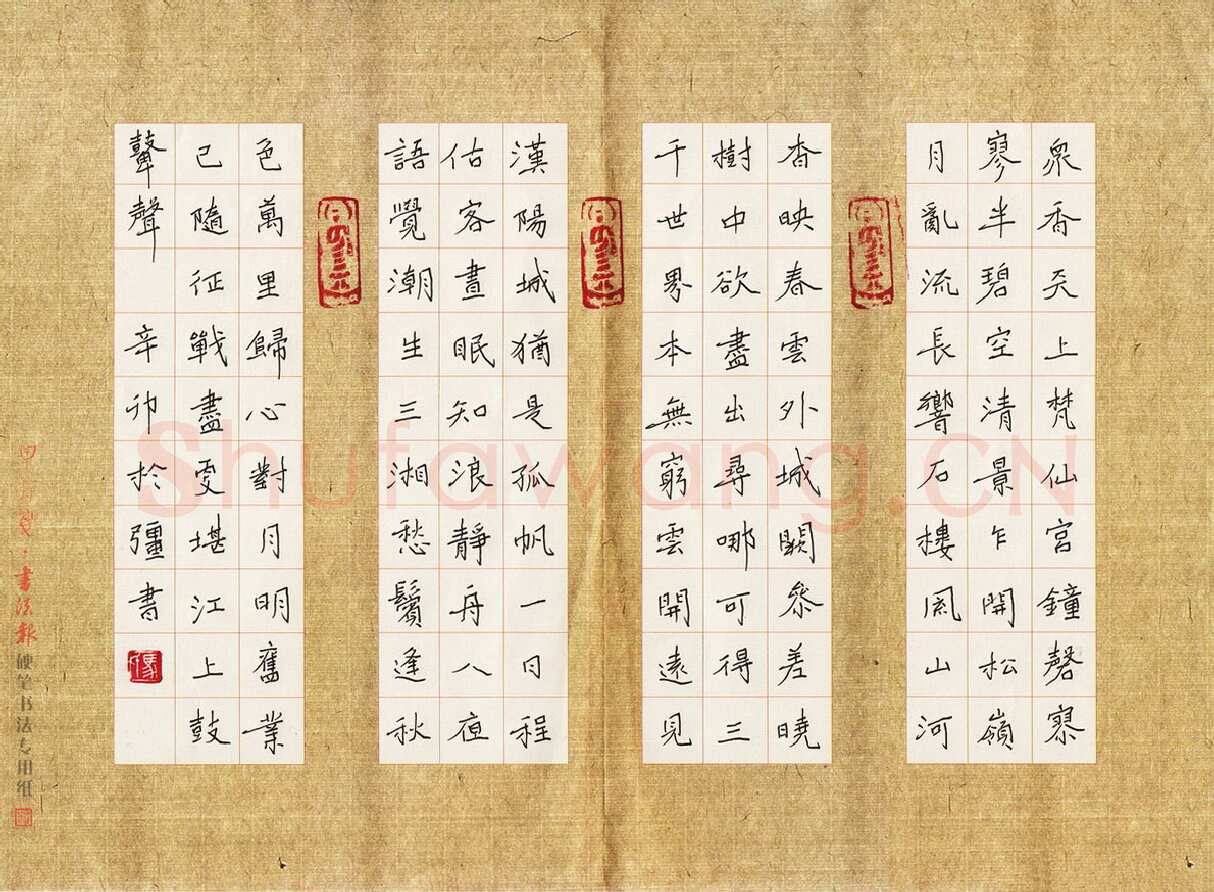 衆香天上梵仙宮鐘磬寥
寥半碧空清景乍開松嶺
月亂流長響石樓風山河
杳映春雲外城闕參差曉
樹中欲盡出尋哪可得三
千世界本無窮雲開遠見
漢陽城猶是孤帆一日程
估客晝眠知浪靜舟八夜
語覺潮生三湘愁鬢逢秋
色萬里歸心對月明舊業
已隨征戰盡更堪江上鼓
鼙聲 辛卯於彊書
書法報硬笔书法专用纸
Shufawang.CN